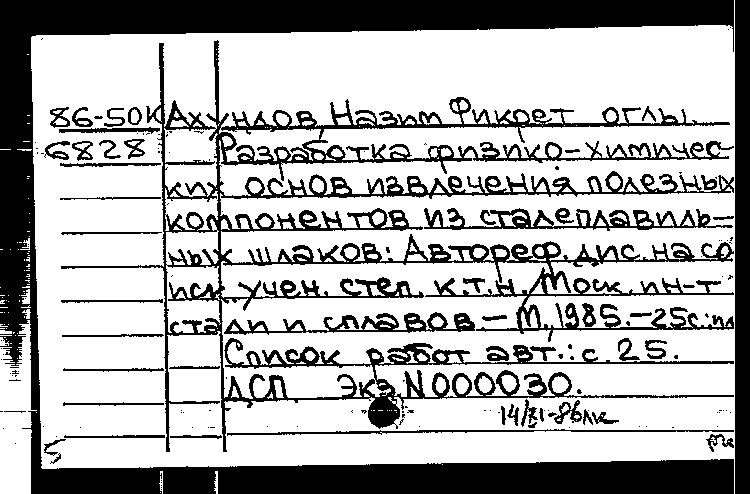 86-50К Ахундов, Назим Фикрет оглы.
6828 Разработка физико-химичес-
ких основ извлечения полезных
компонентов из сталеплавиль-
ных шлаков: Автореф. дис. на со
иск. учен. степ. к.т.н. / Моск. ин-т
стали и сплавов. – М., 1985. – 25с.: ил
Список работ авт.: с. 25.
ДСП. Экз N000030.
5